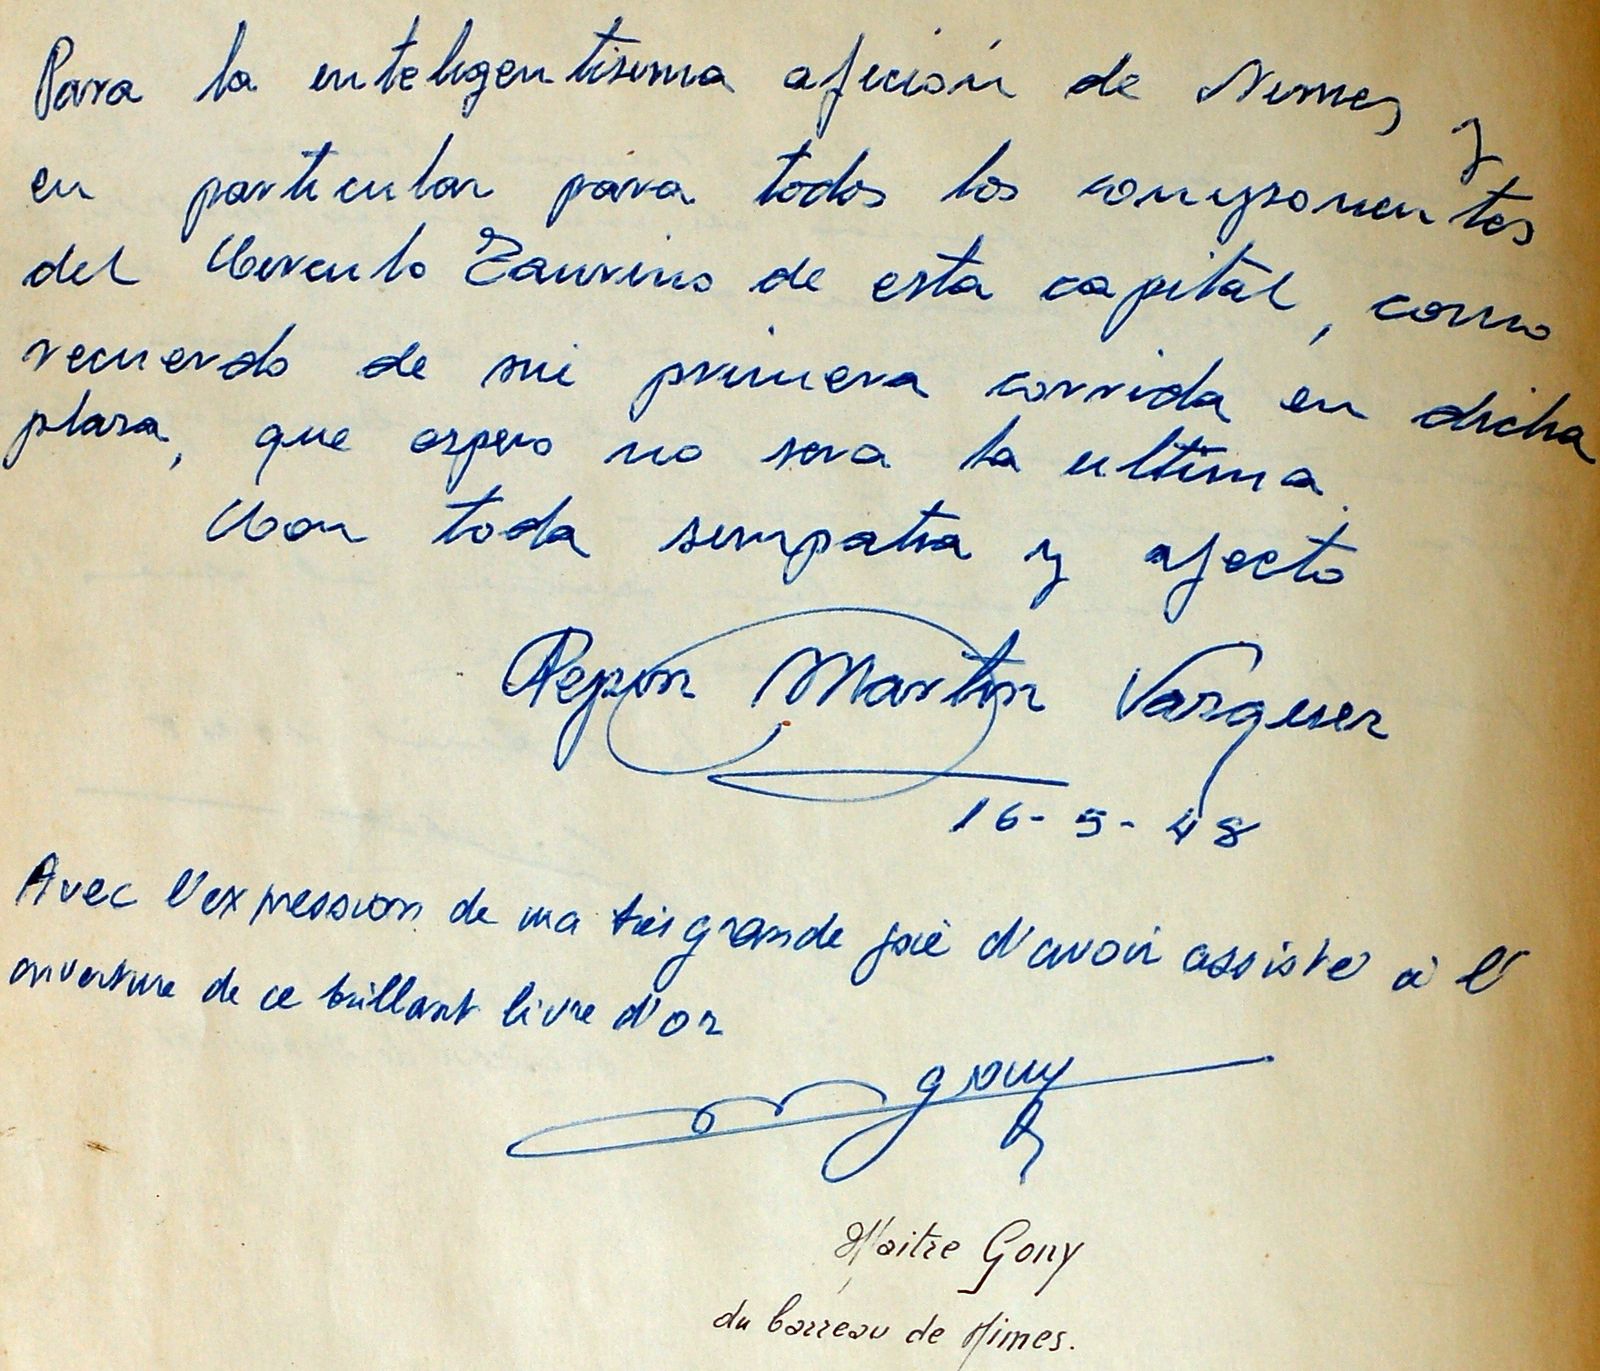 Para la inteligentisima afición de Nimes y
en particular para todos los componentes
del Circulo Taurino de esta capital, como
recuerdo de mi primera corrida en dicha
plaza, que espero no sera la ultima.
Con toda simpatia y afecto
Pepin Martin Vazquez
16-5-48
Avec l'expression de ma très grande joie d'avoir assisté à l'
ouverture de ce brillant livre d'or
gony
Maitre Gony
du barreau de Nimes.